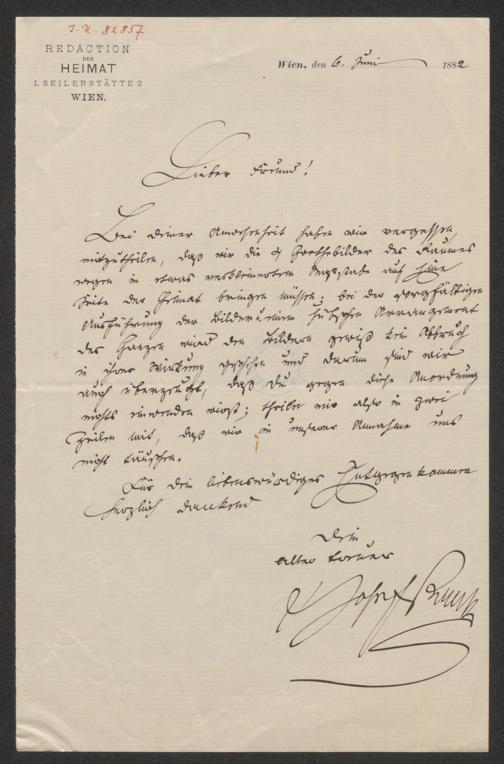 I. N. 81857
REDACTION
DER
HEIMAT
I. SEILERSTÄTTE 2
WIEN.
Wien, den 6. Juni 1882
Lieber Freund!
Bei deiner Anwesenheit haben wir vergessen
mitzutheilen, daß wir die 4 Goethebilder des Raumes
wegen in etwas verkleinertem Maßstabe auf Eine
Seite der Heimat bringen müssen; bei der sorgfältigen
Ausführung der Bilder u. dem hübschen Arrangement
des Ganzen wird den Bildern gewiß kein Abbruch
in ihrer Wirkung geschehen und darum sind wir
auch überzeugt, daß Du gegen diese Anordnung
nichts einwenden wirst; theile mir also in zwei
Zeilen mit, daß wir in unserer Annahme uns
nicht täuschen.
Für Dein liebenswürdiges Entgegenkommen
herzlich dankend
Dein
alter treuer
Josef